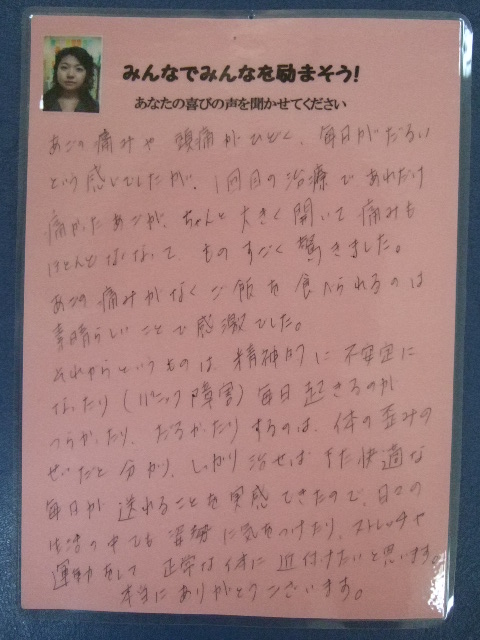 みんなでみんなを励まそう!
あなたの喜びの声を聞かせてください
あごの痛みや頭痛がひどく、毎日がだるい
という感じでしたが、1回目の治療であれだけ
痛かったあごが、ちゃんと大きく開いて痛みも
ほとんどなくなって、ものすごく驚きました。
あごの痛みがなくご飯を食べられるのは
素晴らしいことで感激でした。
それからというものは、精神的に不安定に
なったり(パニック障害)毎日起きるのが
つらかったり、だるかったりするのは、体の歪みの
せいだと分かり、しっかり治せばまた快適な
毎日が送れることを実感できたので、日々の
生活の中でも姿勢に気をつけたり、ストレッチや
運動をして正常な体に近付けたいと思います。
本当にありがとうございます。